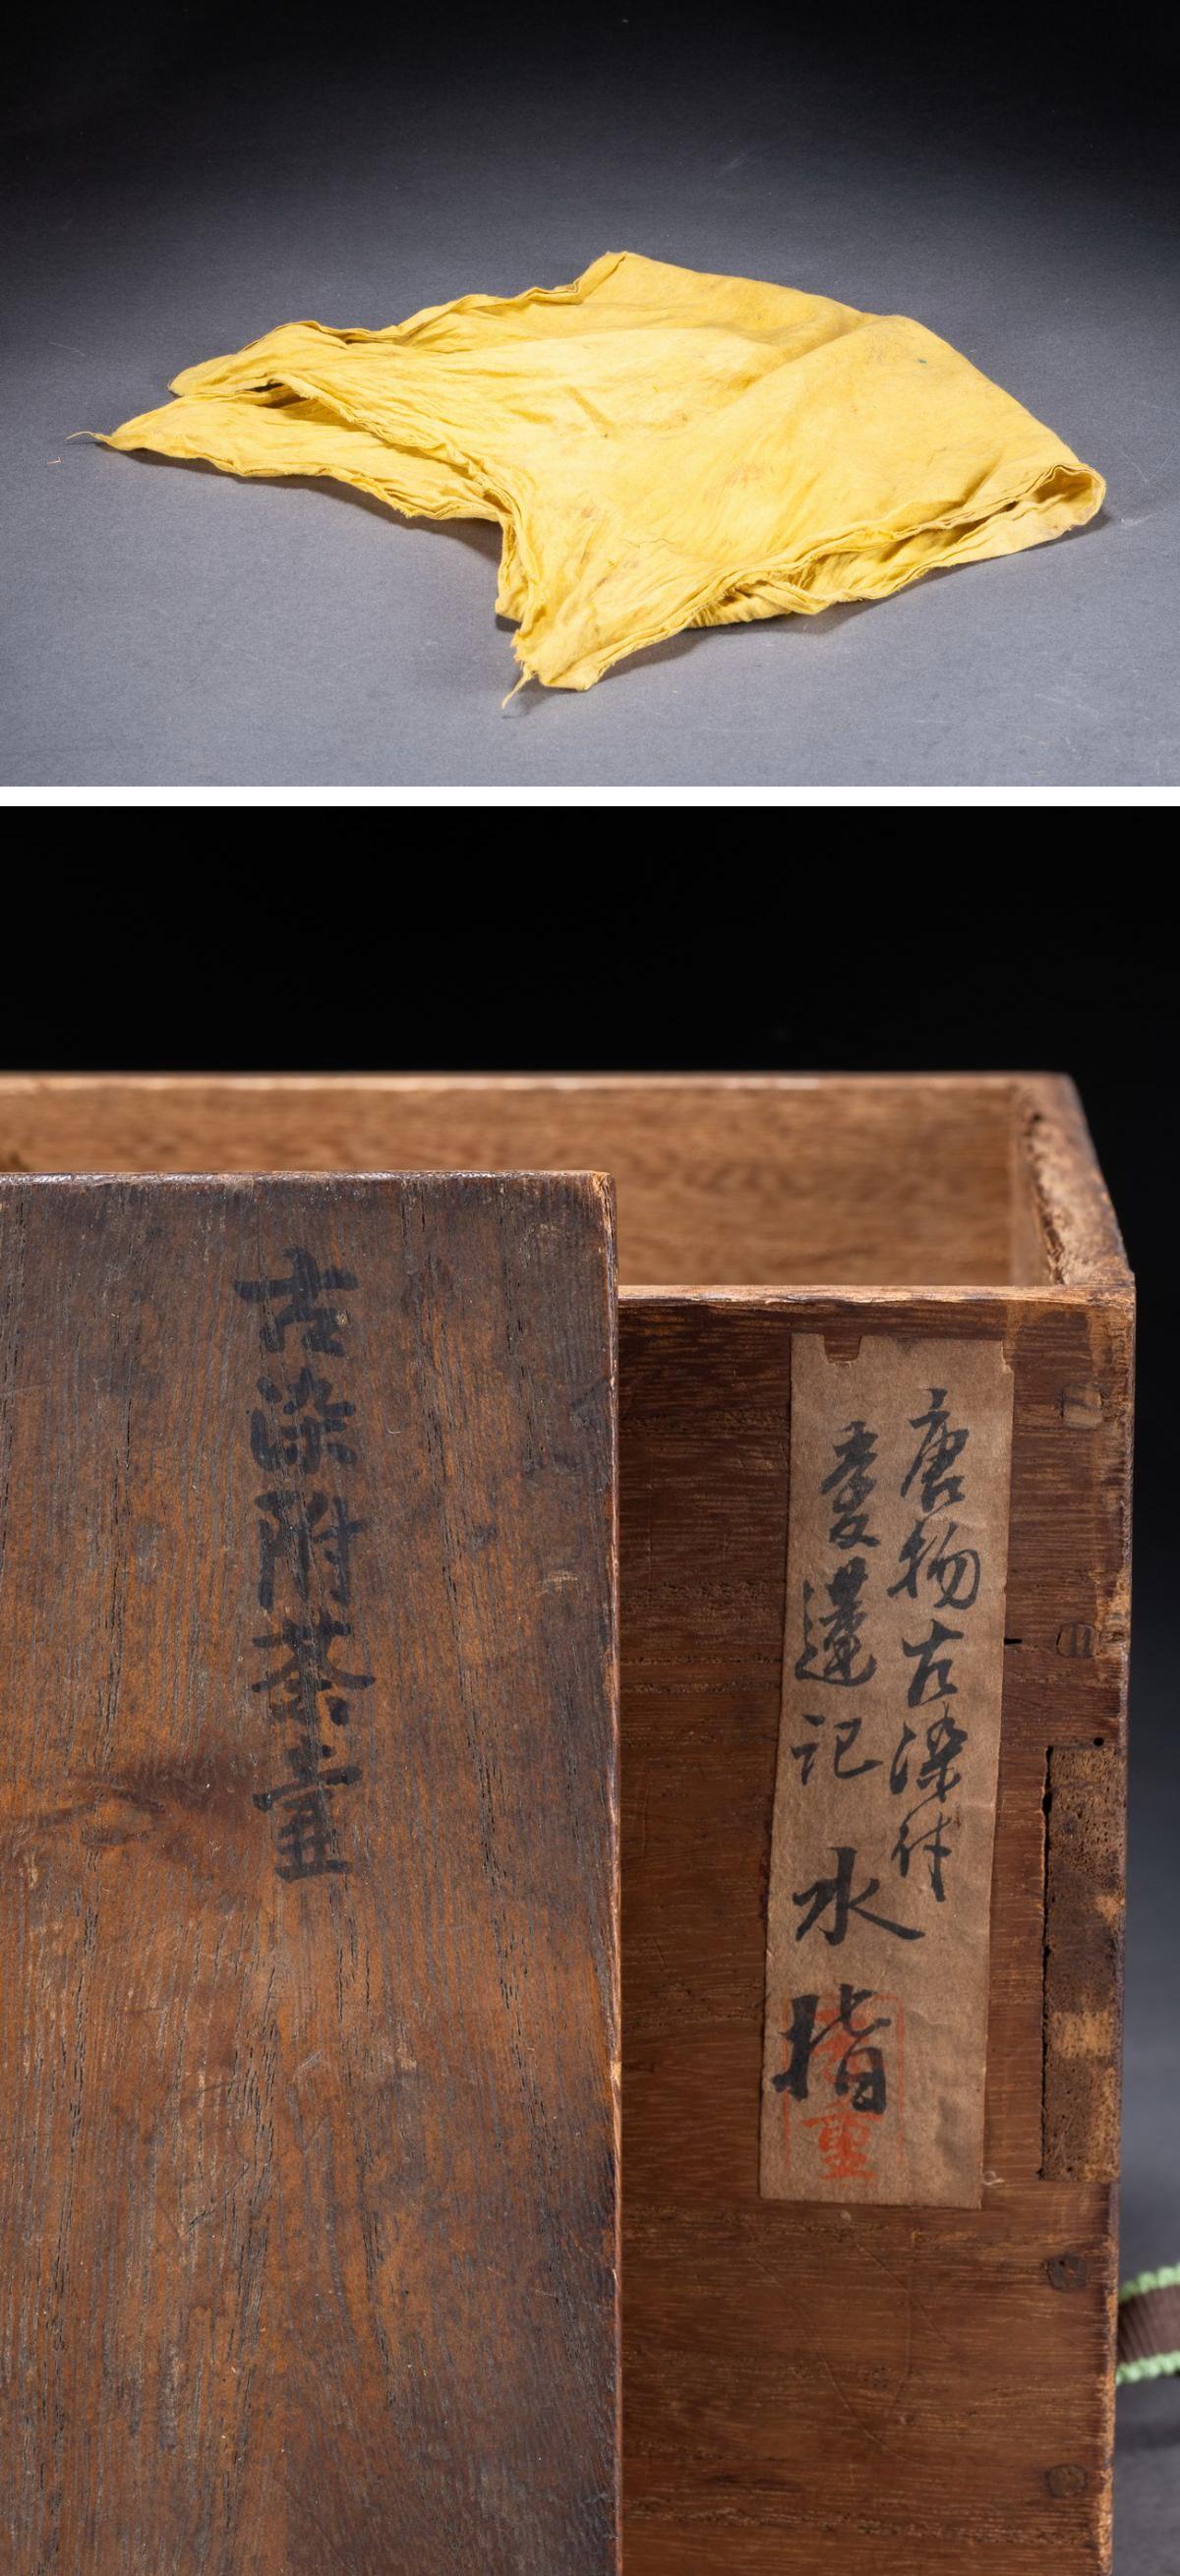 古染附茶壷
唐物古染付
愛蓮記 水指